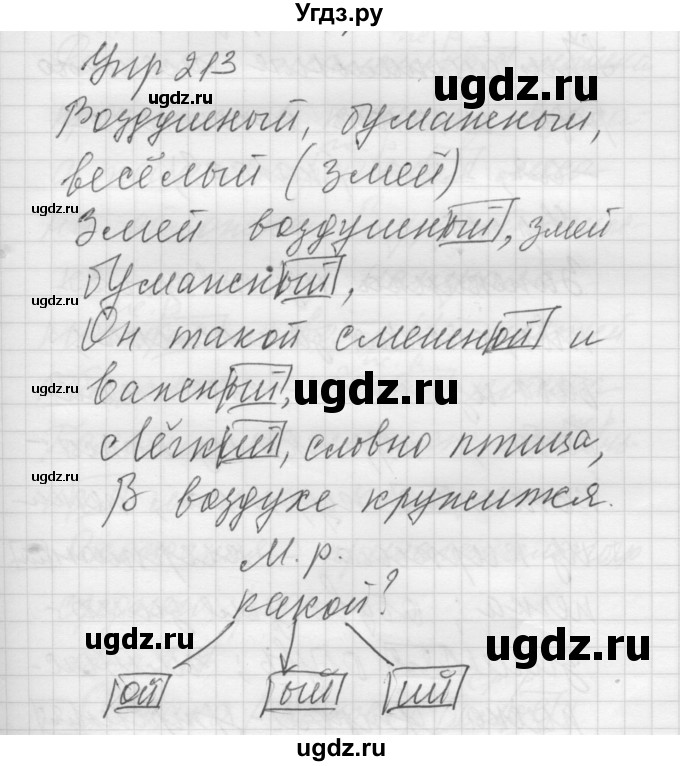 Угдз.ру
Упр 213
ugdz.ru
ugdz.ru
Воздушный, бумажный,
весёлый (Змей)
ugdz.ru
ugdz.ru
Змей воздушный, змей
бумажный,
ugdz.ru
Он такой смешной и
важный,
ugdz.ru
ugdz.ru
Лёгкий, словно птица,
ugdz.ru
В воздухе кружится.
М.р.
какой?
ugdz.ru
ugdz.ru
ой ый ий
ugdz.ru